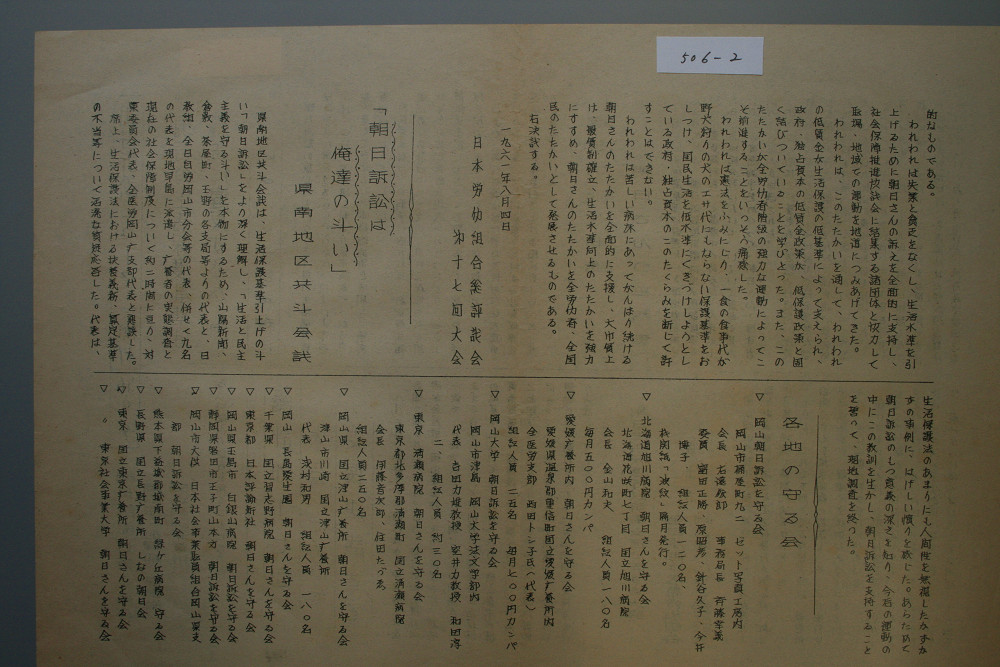 506-2
的なものである。
われわれは失業と貧乏をなくし、生活水準を引
上げるために朝日さんの訴えを全面的に支持し、
社会保障推進協議会に結集する諸団体と協力して
職場、地域での運動を地道につみあげてきた。
われわれは、このたたかいを通して、われわれ
の低賃金が生活保護の低基準によって支えられ、
政府・独占資本の低賃金政策が、低保護政策と固
く結びついていることを学びとった。また、この
たたかいが全労働者階級の強力な運動によってこ
そ前進することをいっそう痛感した。
われわれは憲法をふみにじり、一食の食事代が
野犬狩りの犬のエサ代にもならない保護基準をお
しつけ、国民生活を低水準にくぎづけしようとし
ている政府、独占資本のこのたくらみを断じて許
すことはできない。
われわれは苦しい病床にあってがんばり続ける
朝日さんのたたかいを全面的に支援し、大巾賃上
げ、最賃制確立、生活水準向上のたたかいを強力
にすすめ、朝日さんのたたかいを全労働者、全国
民のたたかいとして発展させるものである。
右決議する。
一九六一年八月四日
日本労働組合総評議会
第十七回大会
「朝日訴訟は
俺達の斗い」
県南地区共斗会議
県南地区共斗会議は、生活保護基準引上げの斗
い「朝日訴訟」をより深く理解し、「生活と民主
主義を守る斗い」を本物にするため、山陽新聞、
倉敷、茶屋町、玉野の各支局等よりの代表と、日
教組、全日自労岡山市分会等の代表、併せて九名
の代表を現地早島に派遣し、療養者の実態調査と
現在の社会保障制度について約二時間に亘り、対
策委員会代表、全医労岡山療支部代表と懇談した。
席上、生活保護法における扶養義務、認定基準
の不当等について活溌な質疑応答した。代表は、
生活保護法のあまりにも人間性を無視したかずか
ずの事例に、はげしい憤りを感じた。あらためて
朝日訴訟のもつ意義の深さを知り、今后の運動の
中にこの教訓を生かし、朝日訴訟を支持すること
を誓って、現地調査を終った。
各地の守る会
▽ 岡山朝日訴訟を守る会
岡山市桶屋町九二 ゼット写真工房内
会長 右遠俊郎 事務局長 斉藤寧義
委員 窪田正勝、原昭彦、針谷久子、今井
博子、 組織人員一二〇名、
機関誌「波紋」隔月発行。
▽ 北海道旭川病院 朝日さんを守る会
北海道旭川市花咲町七丁目 国立旭川病院
会長 金山和夫 組織人員一八〇名
毎月五〇〇円カンパ
▽ 愛媛療養所内 朝日さんを守る会
愛媛県温泉郡重信町国立愛媛療養所内
全医労支部 西田トシ子氏(代表)
組織人員 二五名 毎月七〇〇円カンパ
▽ 岡山大学 朝日訴訟を守る会
岡山市津島 岡山大学法文学部内
代表 吉田力雄教授 室井力教授 和田淳
二、 組織人員 約三〇名
▽ 東京 清瀬病院 朝日さんを守る会
東京都北多摩郡清瀬町 国立清瀬病院
会長 伊藤喜次郎、住田たづゑ
組織人員二五〇名
▽ 岡山県 国立津山療養所 朝日さんを守る会
津山市川崎 国立津山療養所
代表 浅村和男 組織人員 一八〇名
▽ 岡山 長島愛生園 朝日さんを守る会
▽ 千葉県 国立習志野病院 朝日さんを守る会
▽ 東京都 日本評論新社 朝日さんを守る会
▽ 岡山県玉島市 白銀山病院 朝日訴訟を守る会
▽ 静岡県磐田市王子町山本方 朝日訴訟を守る会
▽ 岡山市大供 日本社会事業職員組合岡山県支
部 朝日訴訟を守る会
▽ 熊本県下益城郡城南町 緑ヶ丘病院 守る会
▽ 長野県 国立長野療養所 しなの朝日会
▽ 東京 国立東京療養所 朝日さんを守る会
▽ 〃 東京社会事業大学 朝日さんを守る会